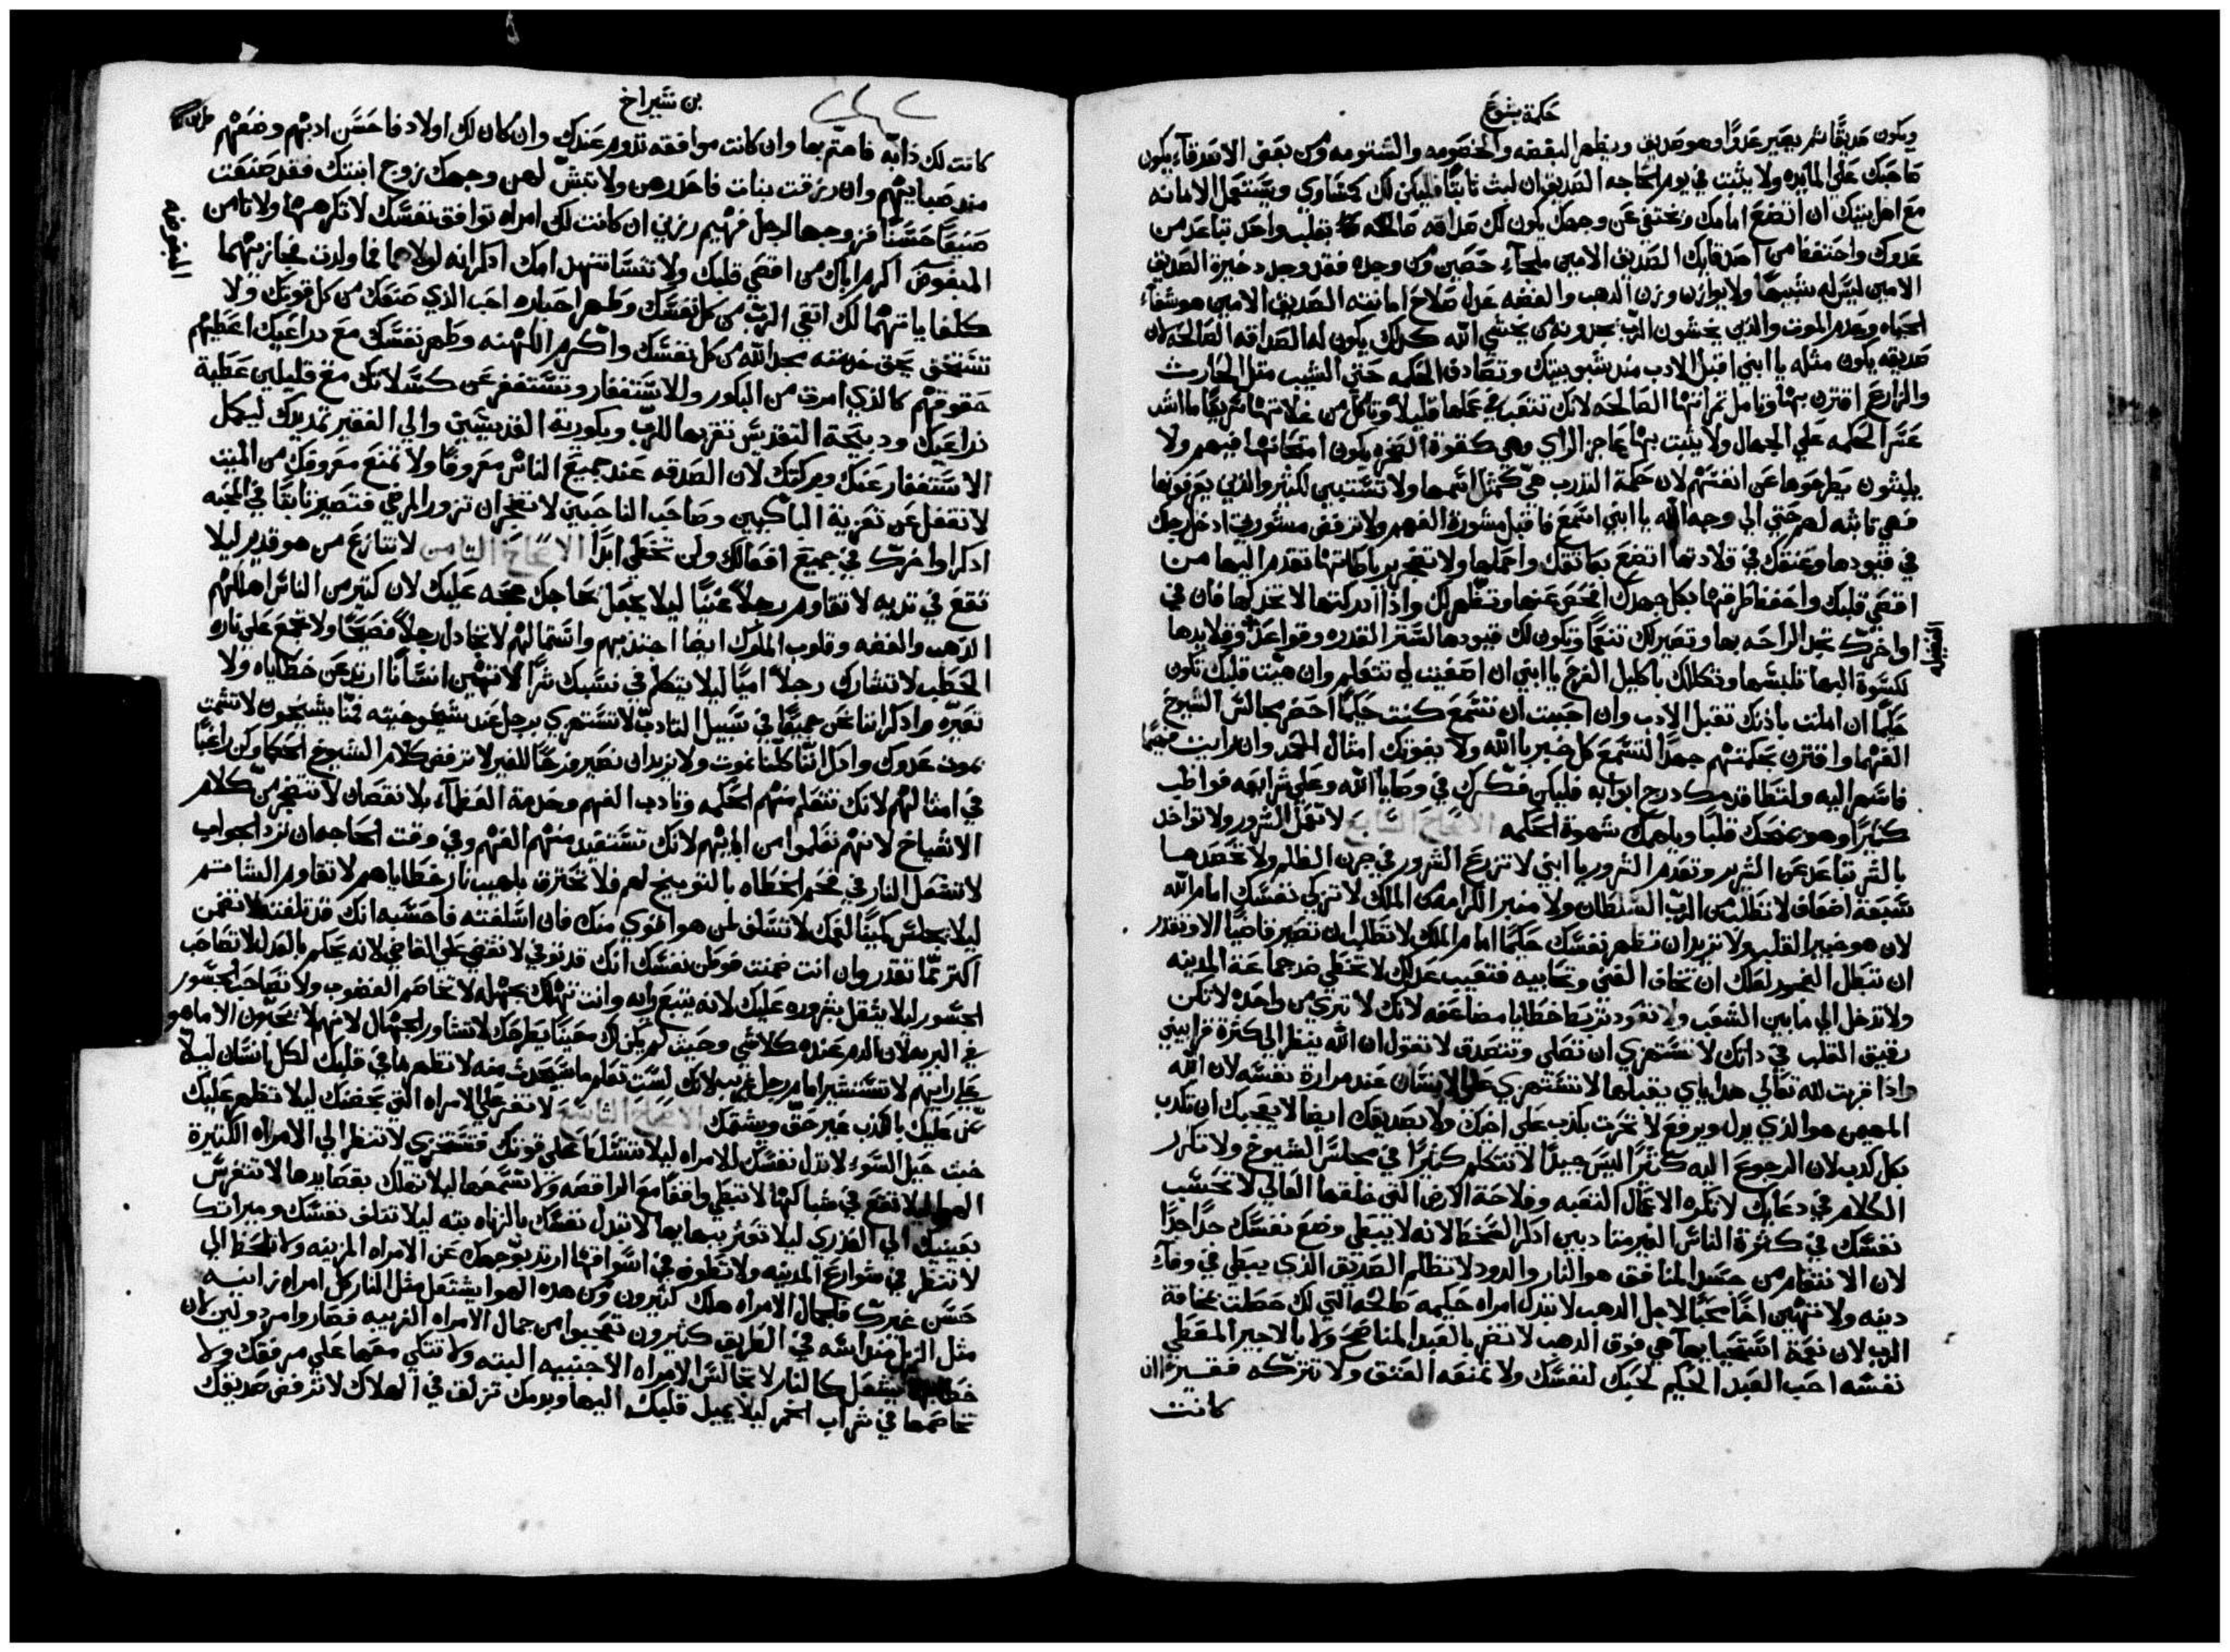 حكمة يشوع
ويكون صديقًا ثم يصير عدوًا وهو صديق ويظهر البغضه والخصومه والشتومه ومن بعض الاصدقاء يكون
صاحبك على المايده ولا يثبت في يوم الحاجه الصديق ان لبث ثابتًا فليكن لك كمساوي ويستعمل الامانه
مع اهل بيتك ان اتضع امامك واختفي عن وجهك يكون لك صداقه صالحه بقلب واحد تباعد من
عدوك واحتفظ من اصدقايك الصديق الامين ملجاء حصين ومن وجده فقد وجد دخيرة الصديق
الامين ليس له شبيهًا ولا يوازن وزن الدهب والفضه عدل صلاح امانته الصديق الامين هو شفاء
الحياه وعدم الموت والدين يخشون الرب يجدونه من يخشي الله كدلك يكون له الصداقه الصالحه لان
صديقه يكون مثله يا ابني اقبل الادب مند شبوبيتك وتصادف الحكمه حتي الشيب مثل الحارث
والزارع اقترن بها وتامل تمراتها الصالحه لانك تتعب في عملها قليلًا وتاكل من غلاتها سريعًا ما اشد
عسر الحكمه علي الجهال ولا يثبت بها عاجز الراي وهي كقوة الصخره يكون امتحانها فيهم ولا
يلبثون يطرحوها عن انفسهم لان حكمة التدرب هي كمثل اسمها ولا تستبين لكثير والدين يعرفونها
فهي ثابته لهم حتي الي وجه الله يا ابني اسمع فاقبل مشورة الفهم ولا ترفض مشورتي ادخل رجلك
في قيودها وعنقك في قلادتها اتضع بعاتقك واحملها ولا تضجر برباطاتها تقدم اليها من
اقصي قلبك واحفظ طرقها بكل جهدك افحص عنها وتظهر لك وادا ادركتها لا تتركها فان في
اواخرك تجد الراحه بها وتصير لك تنعمًا وتكون لك قيودها لستر القدره وقواعد وقلايدها
الفضيله
لكسوة البها تلبسها وتكللك باكليل الفرح يا ابني ان اصغيت لي تتعلم وان هيت قلبك تكون
حكيمًا ان املت بادنك تقبل الادب وان احببت ان تسمع كنت حكيمًا احضر مجالس الشيوخ
الفهما واقترن بحكمتهم جهدًا لتسمع كل خبر بالله ولا يفوتك امثال الحمد وان رايت فهيمًا
فاسهر اليه ولتطا قدمك درج ابوابه فليكن فكرك في وصايا الله وعلي شرايعه فواظب
كثيرًا وهو يمنحك قلبًا ويلهمك شهوة الحكمه الاصحاح السابع لا تعمل الشرور ولا تواخد
بالشر تباعد عن الشرير وتعدم الشرور يا ابني لا تزرع الشرور في حرن الظلم ولا تحصدها
سبعة اضعاف لا تطلب من الرب السلطان ولا منبر الكرامه من الملك لا تزكي نفسك امام الله
لان هو خبير القلب ولا تريد ان تظهر نفسك حكيمًا امام الملك لا تطلب ان تصير قاضيًا الا وتقدر
ان تبطل الفجور لعلك ان تخاف الغني وتحابيه فتعيب عدلك لا تخطي ضد جماعة المدينه
ولا تدخل الي ما بين الشعب ولا تعود تربط خطايا مضاعفه لانك لا تبري من واحده لا تكن
رقيق القلب في داتك لا تستهزي ان تصلي وتتصدق لا تقول ان الله ينظر الي كثرة قرابيني
وادا قربت لله تعالي هداياي يقبلها لا تستهزي علي الانسان عند مرارة نفسه لان الله
المهيمن هو الدي يدل ويرفع لا تحرث بكدب علي اخيك ولا صديقك ايضا لا يعجبك ان تكدب
بكل كدب لان الرجوع اليه كثيرًا ليس جيدًا لا تتكلم كثيرًا في مجلس الشيوخ ولا تكرر
الكلام في دعايك لا تكره الاعمال التعبه وفلاحة الارض التي خلقها العالي لا تحسب
نفسك في كثرة الناس الغير متادبين ادكر السخط لانه لا يبطي وضع نفسك جدًا جدًا
لان الانتقام من جسد المنافق هو النار والدود لا تظلم الصديق الذي يبطي في وفاء
دينه ولا تتهين اخًا محبًا لاجل الدهب لا تترك امراه حكيمه صالحه التي لك حصلت بمخافة
الرب لان نعمة استحيايها هي فوق الدهب لا تضر بالعبد المناصح ولا بالاجير المعطي
نفسه احب العبد الحكيم كحبك لنفسك ولا تمنعه العتق ولا تتركه فقيرًا ان
كانت
بن شيراخ
كانت لك دابه فاهتم بها وان كانت موافقه تدوم عندك وان كان لك اولاد فاحسن ادبهم وضعهم
مند صبايهم وان رزقت بنات فاحدرهن ولا تبش لهن وجهك زوج ابنتك فقد صنعت
صنيعًا حسنًا فزوجها لرجل فهيم رزين ان كانت لك امراه توافق نفسك لا تكرهها ولا تامن
المبغوض اكرم اباك من اقصي قلبك ولا تنسا تنهد امك ادكر انه لولاهما لما ولدت فجازيهما
كلفايا تهما لك اتقي الرب من كل نفسك وطهر احباره احب الدي صنعك من كل قوتك ولا
تستحق بحق خدمته مجد الله من كل نفسك واكرم الكهنه وطهر نفسك مع دراعيك اعطيهم
حقوقهم كالدي امرت من البكور والاستغفار وتستغفر عن كسلانك مع قليلين عطية
دراعيك ودبيحة التقديس تقربها للرب وبكورية القديسين والي الفقير تمد يدك ليكمل
الاستغفار عنك وبركتك لان الصدقه عند جميع الناس معروفًا ولا تمنع معروفك من الميت
لا تغفل عن تعزية الباكيين وصاحب الناحبين لا تضجر ان تزور المرضي فتصير ثابتًا في المحبه
ادكر اواخرك في جميع افعالك ولن تخطي ابدًا الاصحاح الثامن لا تنازع من هو قدير ليلا
تقع في يديه لا تقاوم رجلًا غنيًا ليلا يجعل يحاجك حجه عليك لان كثير من الناس اهلكهم
الدهب والفضه وقلوب الملوك ايضا اجتدبهم واستمالهم لا تجادل رجلًا فصيحًا ولا تجمع علي ناره
الحطب لا تشارك رجلًا اميًا ليلا يتكلم في نسبك شرًا لا تهين انسانًا ارتد عن خطاياه ولا
تعيره وادكر اننا نحن جميعًا في سبيل التاديب لا تستهزي برجل عند شيخوخيته فمنا يشيخون لا تشمت
بموت عدوك وادكر اننا كلنا نموت ولا نريد ان نصير فرحًا للغير لا ترفض كلام الشيوخ الحكما وكن راغبًا
في امثالهم لانك تتعلم منهم الحكمه وتادب الفهم وخدمة العظماء بلا نقصان لا تتضجر من كلام
الاشياخ لانهم تعلموا من ابايهم لانك تستفيد منهم الفهم وفي وقت الحاجه ان ترد الجواب
لا تشعل النار في فحم الخطاه بالتوبيخ لهم فلا تحترق بلهيب نار خطاياهم لا تقاوم الشاتم
ليلا يجلس كمينًا لفمك لا تسلف لمن هو اقوي منك فان اسلفته فاحسبه انك قد تلفته لا تضمن
اكثر مما تقدر وان انت ضمنت فوطن نفسك انك قد توفي لا تقضي علي القاضي لانه يحكم بالعدل لا تصاحب
الجسور ليلا يثقل بشروره عليك لانه يتبع رايه وانت تهلك بجهله لا تخاصم الغضوب ولا تصاحب الجسور
في البريه لان الدم عنده كلاشي وحيث لم يكن لك معينًا يطرحك لا تشاور الجهال لانهم لا يحبون الا ما هو
علي رايهم لا تستشير امام رجل غريب لانك لست تعلم ما سيحدث منه لا تظهر ما في قلبك لكل انسان ليلا
يمن عليك بالكدب غير حق ويشتمك الاصحاح التاسع لا تغير علي الامراه التي بحضنك ليلا تظهر عليك
خبث حيل السوء لا تدل نفسك للامراه ليلا تتسلط علي قوتك فتستخزي لا تنظر الي الامراه الكثيرة
الهوا ليلا تقع في شباكها لا تبطي واقفًا مع الراقصه ولا تسمعها ليلا تهلك بقصايدها لا تتفرس
بعينيك الي العدري ليلا تعثر ببهايها لا تدل نفسك بالزناه بته ليلا تتلف نفسك وميراتك
لا تنظر في شوارع المدينه ولا تطوف في اسواقها ارتد بوجهك عن الامراه المزينه ولا تلحظ الي
حسن غيرك فلجمال الامراه هلك كثيرون ومن هده الهوا يشتعل مثل النار كل امراه زانيه
مثل الزبل تنداس في الطريق كثيرون تعجبوا من جمال الامراه الغريبه فصاروا مردولين لان
خطابها يشعل كالنار لا تجالس الامراه الاجنبيه البته ولا تتكي معها علي مرفقك ولا
تخاصمها في شراب الخمر ليلا يميل قلبك اليها وبدمك تزلق في الهلاك لا ترفض صديقك